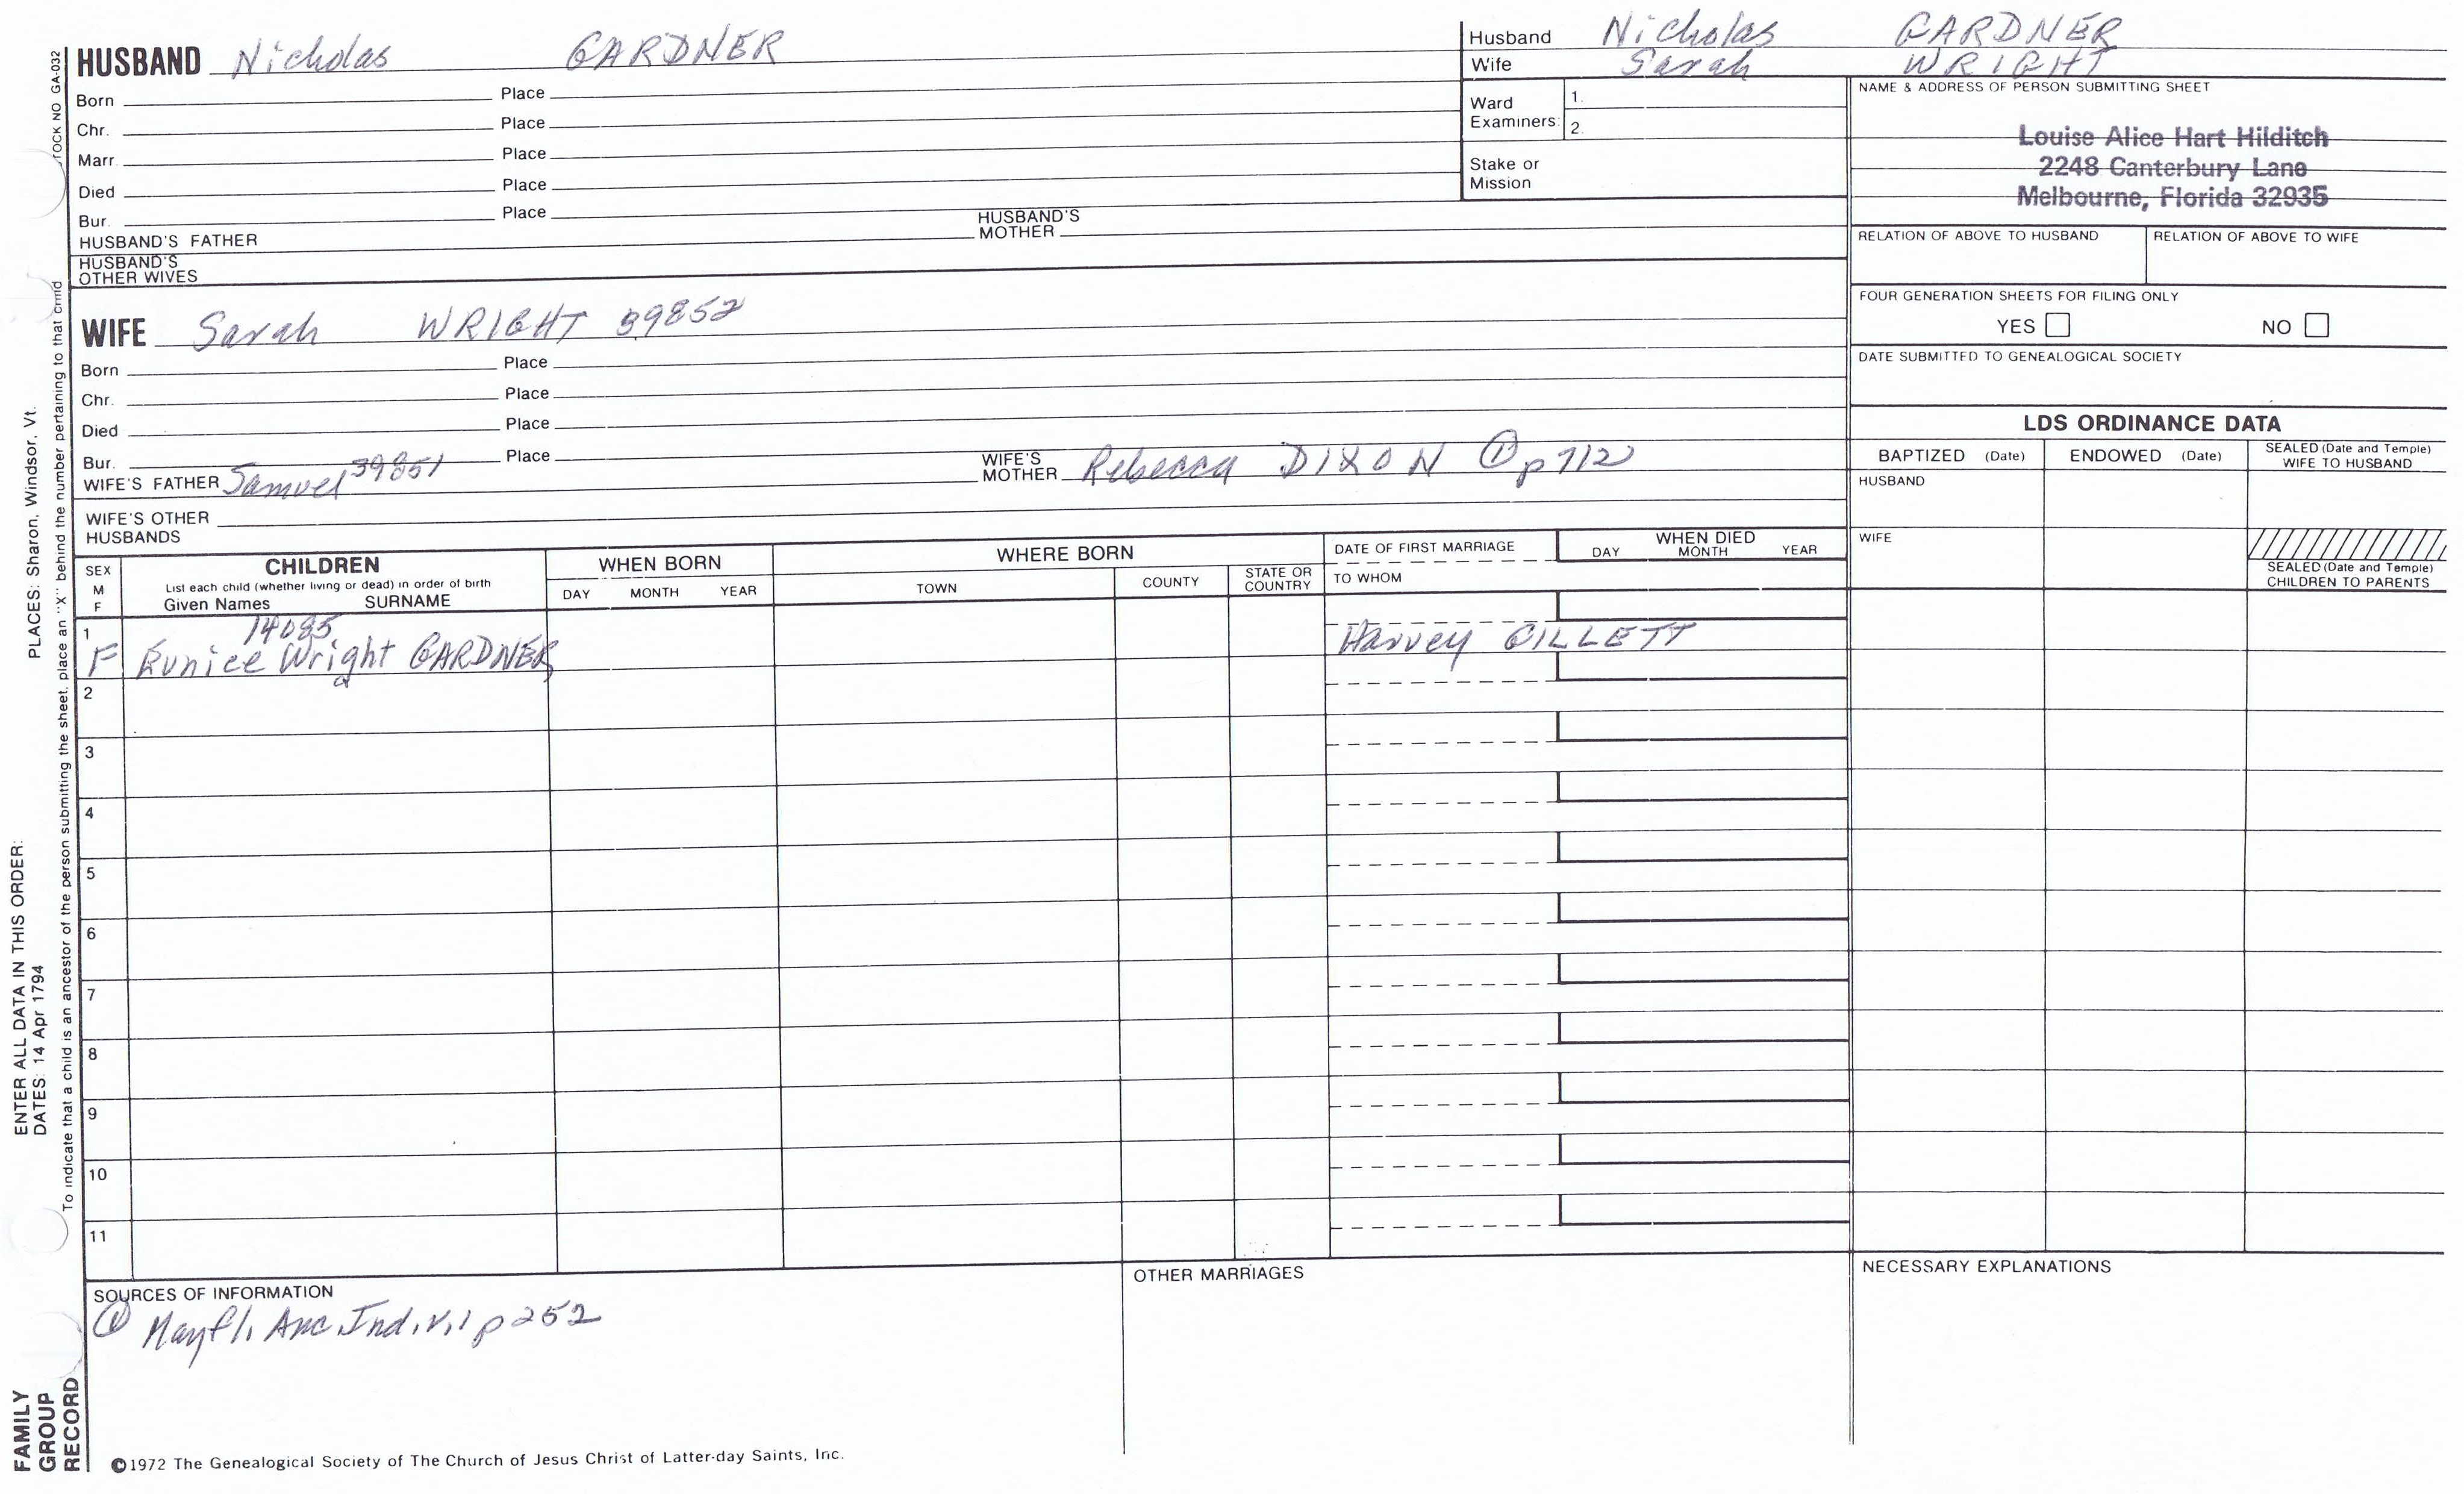 HUSBAND Nicholas GARDNER
Born Place
Chr. Place
Marr. Place
Died Place
Bur. Place
HUSBAND'S FATHER HUSBAND'S MOTHER
HUSBAND'S OTHER WIVES
WIFE Sarah WRIGHT 39852
Born Place
Chr. Place
Died Place
Bur. Place
WIFE'S FATHER Samuel 39851 WIFE'S MOTHER Rebecca DIXON ① p 712
WIFE'S OTHER HUSBANDS
Husband Nicholas GARDNER
Wife Sarah WRIGHT
Ward Examiners: 1.
2.
Stake or Mission
NAME & ADDRESS OF PERSON SUBMITTING SHEET
Louise Alice Hart Hilditch
2248 Canterbury Lane
Melbourne, Florida 32935
RELATION OF ABOVE TO HUSBAND RELATION OF ABOVE TO WIFE
FOUR GENERATION SHEETS FOR FILING ONLY
YES NO
DATE SUBMITTED TO GENEALOGICAL SOCIETY
LDS ORDINANCE DATA
BAPTIZED (Date) ENDOWED (Date) SEALED (Date and Temple) WIFE TO HUSBAND
HUSBAND
WIFE
SEALED (Date and Temple) CHILDREN TO PARENTS
SEX M F
CHILDREN
List each child (whether living or dead) in order of birth
Given Names SURNAME
WHEN BORN
DAY MONTH YEAR
WHERE BORN
TOWN COUNTY STATE OR COUNTRY
DATE OF FIRST MARRIAGE
TO WHOM
WHEN DIED
DAY MONTH YEAR
1
14085
F Eunice Wright GARDNER Harvey GILLETT
2
3
4
5
6
7
8
9
10
11
SOURCES OF INFORMATION
① Mayfl. Anc. Ind. V.1 p 252
OTHER MARRIAGES
NECESSARY EXPLANATIONS
©1972 The Genealogical Society of The Church of Jesus Christ of Latter-day Saints, Inc.
FAMILY GROUP RECORD
ENTER ALL DATA IN THIS ORDER:
DATES: 14 Apr 1794 PLACES: Sharon, Windsor, Vt.
To indicate that a child is an ancestor of the person submitting the sheet, place an "X" behind the number pertaining to that child
TOCK NO GA-032